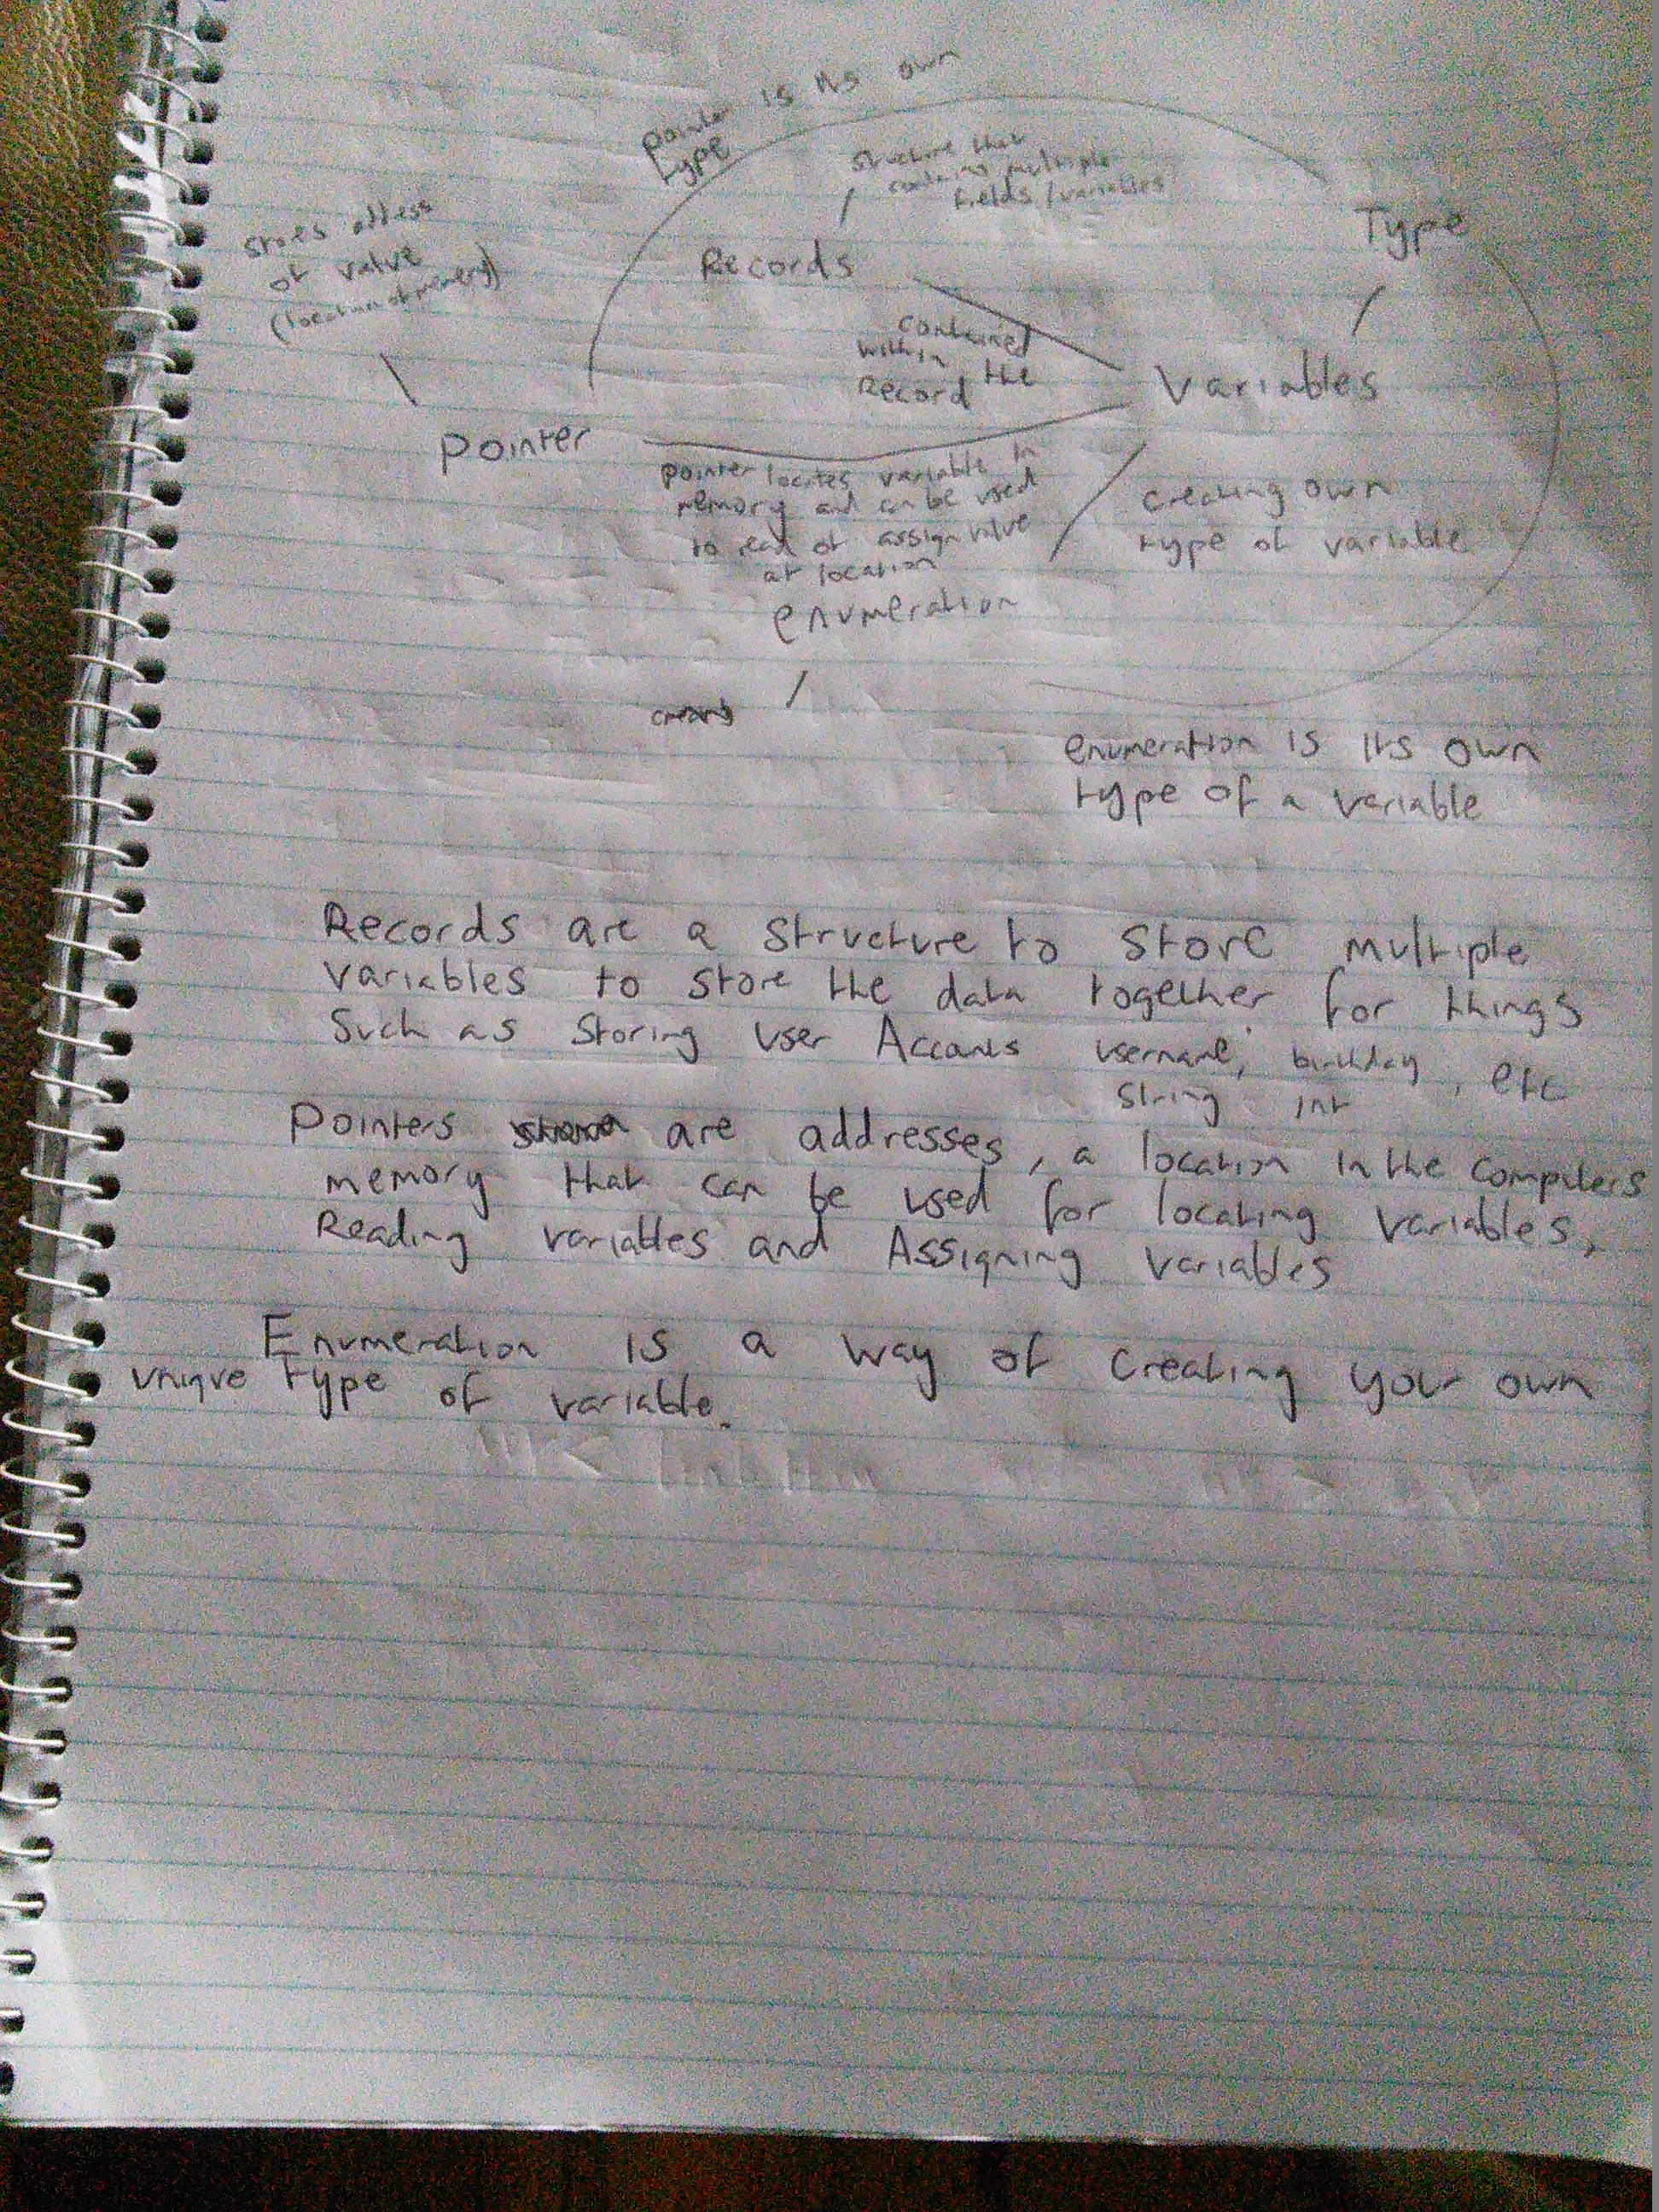 pointer is its own
type
structure that
contains multiple
fields / variables
Type
stores address
of value
(location of memory)
Records
contained
within the
Record
Variables
pointer
pointer locates variable in
memory and can be used
to read or assign value
at location
creating own
type of variable
enumeration
enumeration is its own
type of a variable
Records are a structure to store multiple
variables to store the data together for things
such as storing user Accounts username, birthday, etc
string int
Pointers are addresses, a location in the compilers
memory that can be used for locating variables,
Reading variables and Assigning variables
Enumeration is a way of creating your own
unique type of variable.